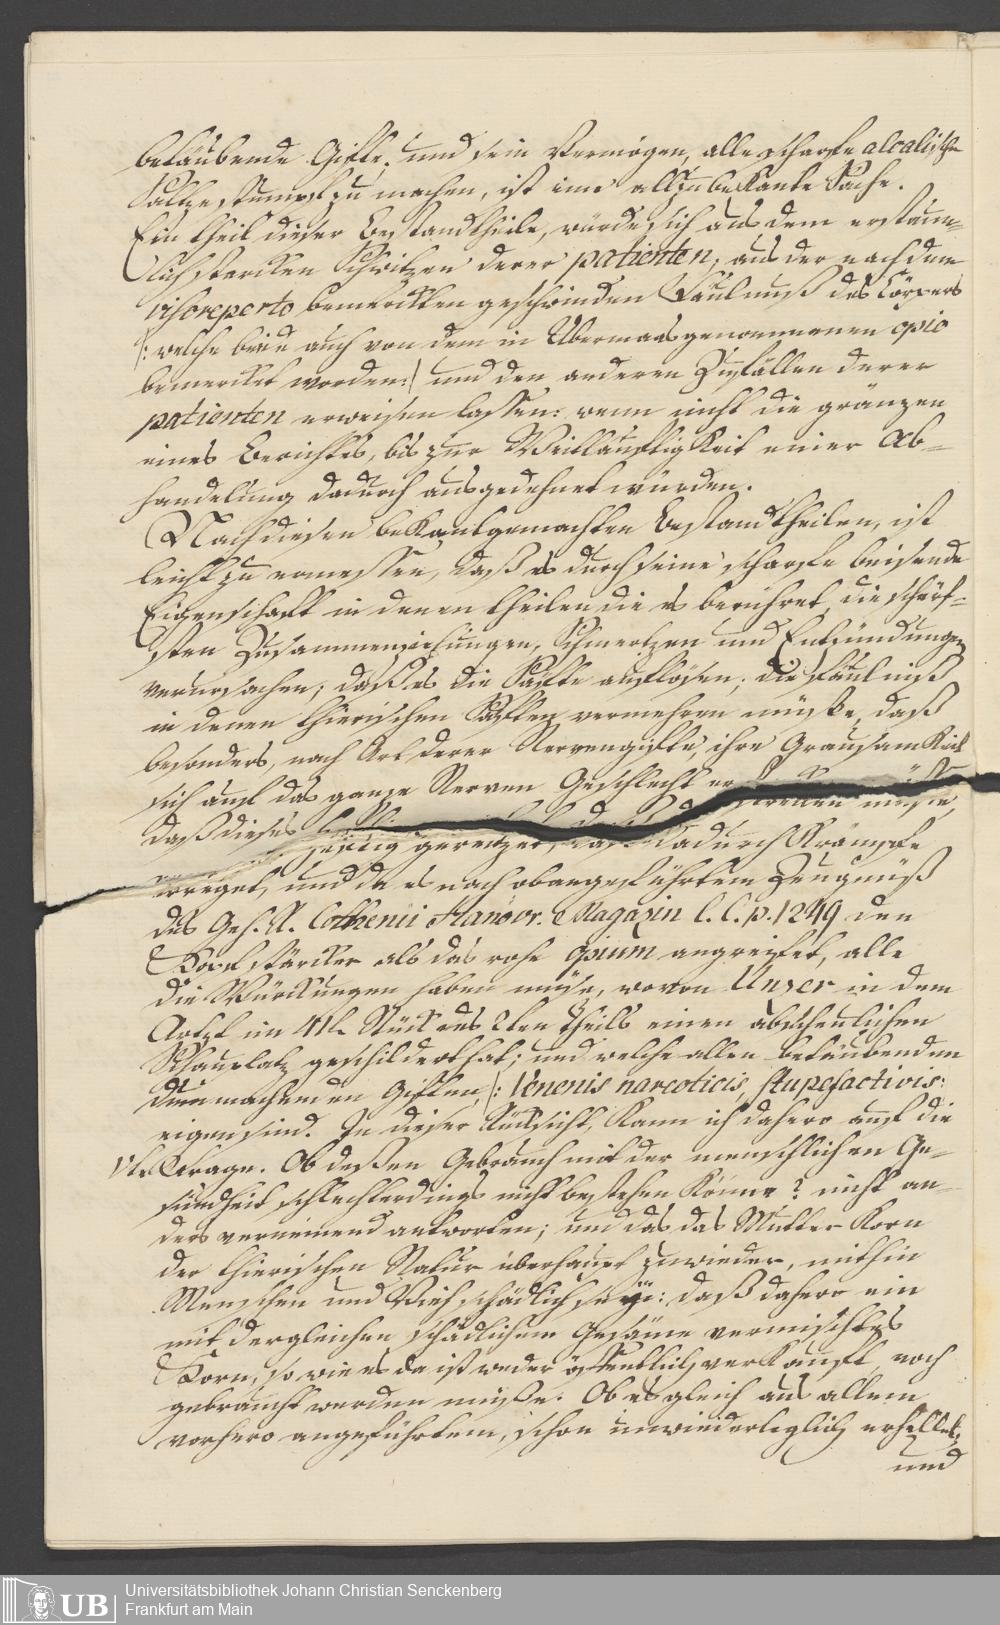 betäubende Gifte, und sein Vermögen, alle scharfe alcalische
Saltze stumpf zu machen, ist eine allzu bekante Sache.
Ein theil dieser Bestandtheile, würde sich aus dem erstaun-
lich starcken Schwitzen derer patienten, aus der nach dem
viso reperto bemerckten geschwinden Fäulnuß des Cörpers
/: welche beide auch von dem in Übermaas genommenen opio
bemercket worden :/ und den anderen Zufällen derer
patienten erweisen lassen: wenn nicht die gränzen
eines Berichtes, bis zur Weitläuftigkeit einer Ab-
handelung dadurch ausgedehnet würden.
Nach diesen bekantgemachten Bestandtheilen, ist
leicht zu ermessen, daß es durch seine scharfe beisende
Eigenschafft in denen theilen die es berühret, die schärf-
sten Zusammenziehungen, Schmertzen und Entzündungen
verursachen; daß es die Säffte auflösen, die Fäulniß
in denen thierischen Säfften vermehren müste, daß
besonders, nach Art derer Nervengiffte, ihre Grausamkeit
sich auf das ganze Nerven Geschlecht erstrecken müste,
daß dieses gereitzet, dadurch Krämpfe
erreget, und da es nach obangeführtem Zeugnüß
des Geh. R. Cothenii Hanövr. Magazin l. c. p. 1249 den
Kopf stärcker als das rohe opium angreifet, alle
die Würckungen haben müße, wovon Unzer in dem
Artzt im 41t. Stück des 2ten Theils einen abscheulichen
Schauplatz geschildert hat; und welche allen betäubenden
dum machenden Giften, /: Venenis narcoticis, stupefactivis :/
eigen sind. In dieser Rücksicht, kann ich dahero auf die
VI. Frage. Ob deßen Gebrauch mit der menschlichen Ge-
sundheit schlechterdings nicht bestehen könne? nicht an-
ders verneinend antworten; und das das Mutter Korn
der thierischen Natur überhaupt zuwieder, mithin
Menschen und Vieh schädlich seye: daß dahero ein
mit dergleichen schädlichem Gesäme vermischtes
Korn, so wie es da ist weder öffentlich verkauft, noch
gebraucht werden müße. Ob es gleich aus allem
vorhero angeführtem, schon unwiederleglich erhellet,
und
Universitätsbibliothek Johann Christian Senckenberg
Frankfurt am Main
UB